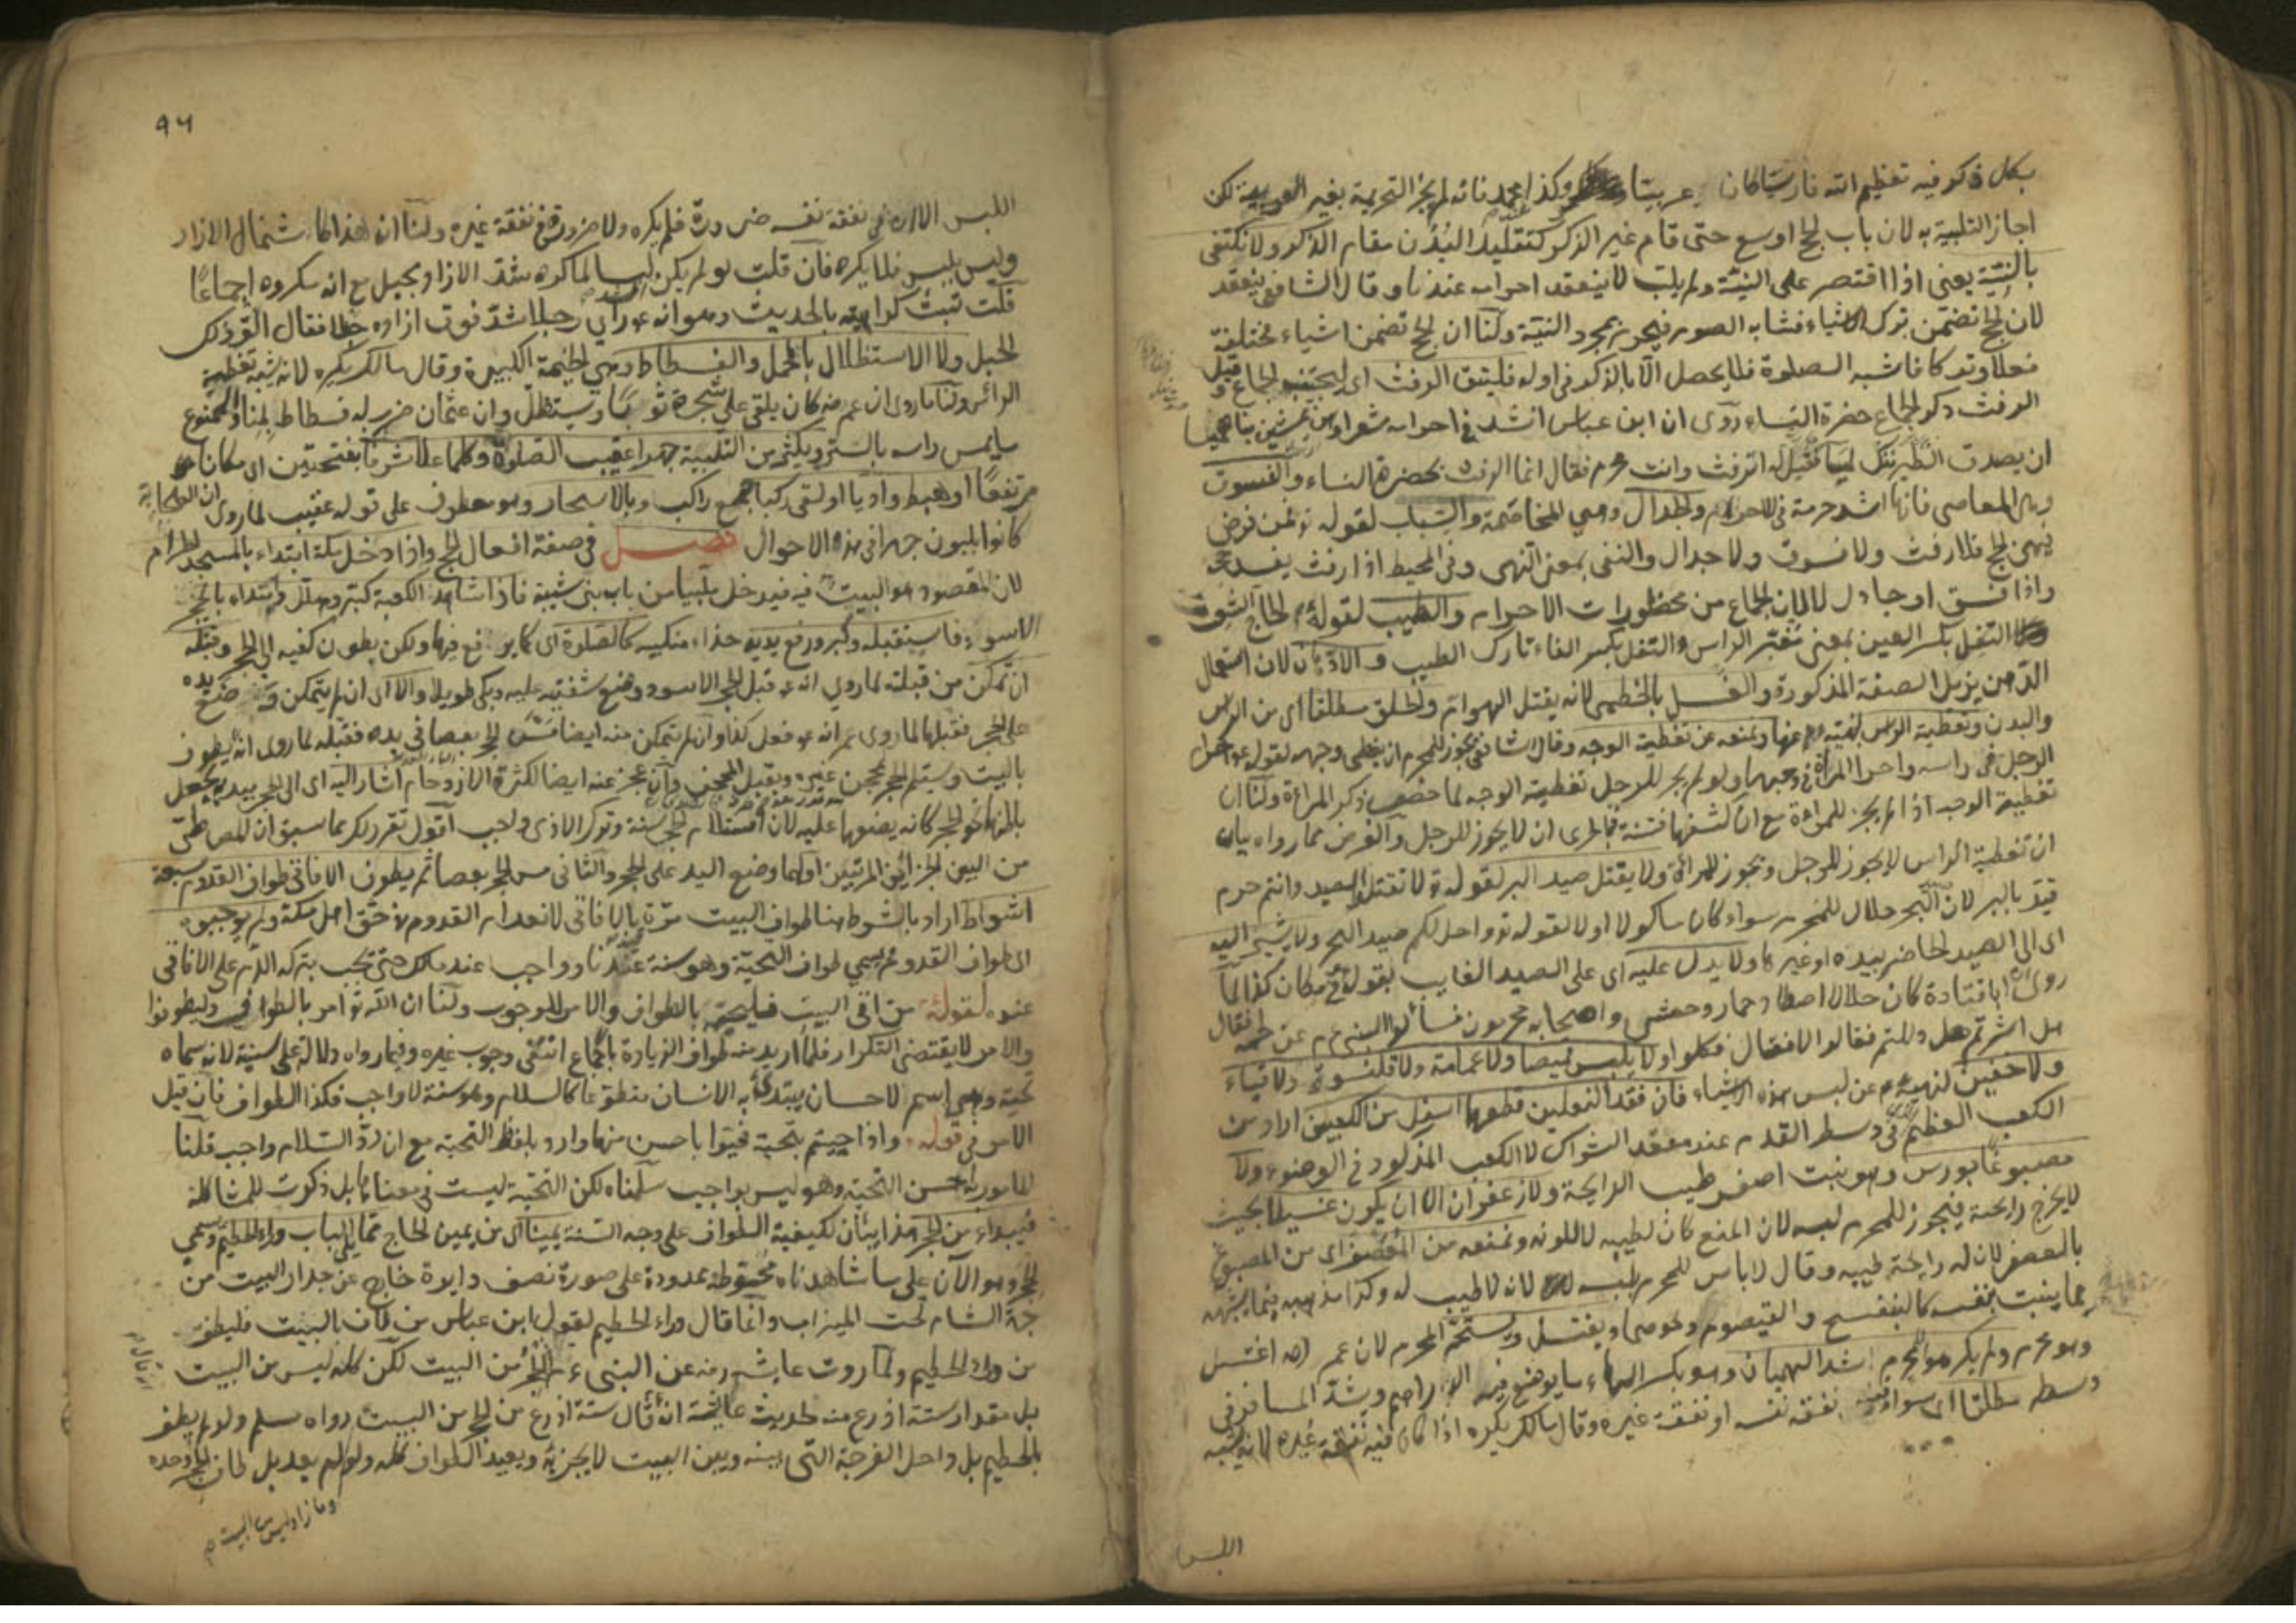 بكل ذكر فيه تعظيم الله فارسيا كان او عربيا وكذا محمد فانه لم يجز التحريمة بغير العربية لكن
اجاز التلبية به لان باب الحج اوسع حتى قام غير الذكر كتقليد البدن مقام الذكر ولا يكتفى
بالنية يعنى اذا اقتصر على النية ولم يلب لا ينعقد احرامه عندنا وقال الشافعى ينعقد
لان الحج تضمن ترك اشياء فشابه الصوم فيجوز بمجرد النية ولنا ان الحج تضمن اشياء مختلفة
فعلا وتركا فاشبه الصلوة فلا يحصل الا بالذكر فى اوله فليتق الرفث اى ليجتنب الجماع وقيل
الرفث ذكر الجماع حضرة النساء روى ان ابن عباس انشد فى احرامه شعرا وهن يمشين بنا هميسا
ان يصدق الطير ننك لميسا فقيل له اترفث وانت محرم فقال انما الرفث بحضرة النساء والفسوق
وهى المعاصى فانها اشد حرمة فى الاحرام والجدال وهى المخاصمة والسباب لقوله تع فمن فرض
فيهن الحج فلا رفث ولا فسوق ولا جدال والنفى بمعنى النهى وفى المحيط اذا رفث يفسد حجه
واذا فسق او جادل لا لان الجماع من محظورات الاحرام والطيب لقوله عم الحاج الشعث
التفل بكسر العين بمعنى مغبر الراس والتفل بكسر الفاء تارك الطيب والادهان لان استعمال
الدهن يزيل الصفة المذكورة والغسل بالخطمى لانه يقتل الهوام والحلق مطلقا اى من الراس
والبدن وتغطية الراس لنهيه عم عنها ونمنعه عن تغطية الوجه وقال الشافعى يجوز للمحرم ان يغطى وجهه لقوله عم احرام
الرجل فى راسه واحرام المراة فى وجهها ولو لم يجز للرجل تغطية الوجه لما خصص ذكر المراة ولنا ان
تغطية الوجه اذا لم يجز للمراة مع ان كشفها فتنة فبالحرى ان لا يجوز للرجل والغرض مما رواه بيان
ان تغطية الراس لا يجوز للرجل ويجوز للمراة ولا يقتل صيد البر لقوله تع لا تقتلوا الصيد وانتم حرم
قيد بالبر لان صيد البحر حلال للمحرم سواء كان ماكولا او لا لقوله تع واحل لكم صيد البحر ولا يشير اليه
اى الى الصيد الحاضر بيده او غيرها ولا يدل عليه اى على الصيد الغايب بقوله فى مكان كذا لما
روى ان ابا قتادة كان حلالا اصطاد حمار وحشى واصحابه محرمون فسألوا النبى عم عن حله فقال
هل اشرتم هل دللتم فقالوا لا فقال فكلوا ولا يلبس قميصا ولا عمامة ولا قلنسوة ولا قباء
ولا خفين لنهيه عم عن لبس هذه الاشياء فان فقد النعلين قطعهما اسفل من الكعبين اراد من
الكعب العظم فى وسط القدم عند معقد الشراك لا الكعب المذكور فى الوضوء ولا
مصبوغا بورس وهو نبت اصفر طيب الرايحة ولا زعفران الا ان يكون غسيلا بحيث
لا يخرج رايحة فيجوز للمحرم لبسه لان المنع كان لطيبه لا للونه ونمنعه من المعصفر اى من المصبوغ
بالعصفر لان له رايحة طيبة وقال لا باس للمحرم بلبسه لانه لا طيب له وكذا مذهبه فيما يشبهه
مما ينبت بنفسه كالبنفسج والقيصوم ونحوهما ويغتسل ويستحم المحرم لان عمر رضه اغتسل
وهو محرم ولم يكره للمحرم شد الهميان وهو بكسر الهاء ما يوضع فيه الدراهم ويشد المسافر فى
وسطه مطلقا اى سواء فيه نفقة نفسه او نفقة غيره وقال مالك يكره اذا كان فيه نفقة غيره لانه يشبه
اللبس
٩٦
اللبس الا ان فى نفقة نفسه ضرورة فلم يكره ولا ضرورة فى نفقة غيره ولنا ان هذا كاشتمال الازار
وليس بلبس فلا يكره فان قلت لو لم يكن لبسا لما كره شد الازار بحبل مع انه مكروه اجماعا
قلت تثبت كراهيته بالحديث وهو انه عم راى رجلا شد فوق ازاره حبلا فقال الق ذلك
الحبل ولا الاستظلال بالمحمل والفسطاط وهى الخيمة الكبيرة وقال مالك يكره لانه يشبه تغطية
الراس ولنا ما روى ان عمر رضه كان يلقى على شجرة ثوبا ويستظل وان عثمان ضرب له فسطاط بمنا والممنوع
ما يمس راسه بالستر ويكثر من التلبية جهرا عقيب الصلوة وكلما علا شرفا بفتحتين اى مكانا
مرتفعا او هبط واديا او لقى ركبا جمع راكب وبالاسحار وهو معطوف على قوله عقيب لما روى ان الصحابة
كانوا يلبون جهرا فى هذه الاحوال فصل فى صفة افعال الحج واذا دخل مكة ابتداء بالمسجد الحرام
لان المقصود هو البيت فيه فيدخل ملبيا من باب بنى شيبة فاذا شاهد الكعبة كبر وهلل وابتداء بالحجر
الاسود فاستقبله وكبر ورفع يديه حذاء منكبيه كالصلوة اى كما يرفع فيها ولكن بطون كفيه الى الحجر وقبله
ان تمكن من قبلته لما روى انه عم قبل الحجر الاسود ووضع شفتيه عليه وبكى طويلا والا اى ان لم يتمكن وضع يده
على الحجر فقبلها لما روى عمر انه عم فعل كذا وان لم يتمكن منه ايضا مس الحجر بعصا فى يده فقبله لما روى انه عم يطوف
بالبيت ويستلم الحجر بمحجن ويقبل المحجن وان عجز عنه ايضا لكثرة الازدحام اشار اليه اى الى الحجر بيديه يجعل
باطنهما نحو الحجر كانه يضعهما عليه لان استلام الحجر سنة وترك الاذى واجب اقول تقرر لك بما سبق ان للمص طى
من البين الجزائين المرتبين اولهما وضع اليد على الحجر والثانى مس الحجر بعصا ثم يطوف الافاقى طواف القدوم سبعة
اشواط اراد بالشوط هنا طواف البيت مرة بالافاقى لانعدام القدوم فى حق اهل مكة ولم يوجبوه
اى طواف القدوم ويسمى طواف التحية وهو سنة عندنا وواجب عند مالك حتى يجب بتركه الدم على الافاقى
عنده لقوله عم من اتى البيت فليحيه بالطواف والامر للوجوب ولنا ان الله تع امر بالطواف فى وليطوفوا
والامر لا يقتضى التكرار فلما اريد منه طواف الزيارة باجماع انتفى وجوب غيره وفيما رواه دلالة على سنية لانه سماه
تحية وهى اسم لاحسان يبتدئ به الانسان متطوعا كالسلام وهو سنة لا واجب فكذا الطواف فان قيل
الامر فى قوله تع واذا حييتم بتحية فحيوا باحسن منها وارد بلفظ التحية مع ان رد السلام واجب قلنا
المامور به احسن التحية وهو ليس بواجب سلمناه لكن التحية ليست فى معناها بل ذكرت للمشاكلة
فيبداء من الحجر هذا بيان لكيفية الطواف على وجه السنة يمينا اى من يمين الحاج مما يلى الباب وراء الحطيم وسمى
الحجر وهو الآن على ما شاهدناه محوطة ممدودة على صورة نصف دايرة خارج عن جدار البيت من
جهة الشام تحت الميزاب وانما قال وراء الحطيم لقول ابن عباس من طاف بالبيت فليطف
من وراء الحطيم ولما روت عايشه رضه عن النبى عم الحجر من البيت لكن كله ليس من البيت
بل مقدار ستة اذرع منه لحديث عايشة انه قال ستة اذرع من الحجر من البيت رواه مسلم ولو لم يطف
بالحطيم بل دخل الفرجة التى بينه وبين البيت لا يجزيه ويعيد الطواف كله ولو لم يعد بل طاف الحجر وحده
وما زاد ليس من البيت